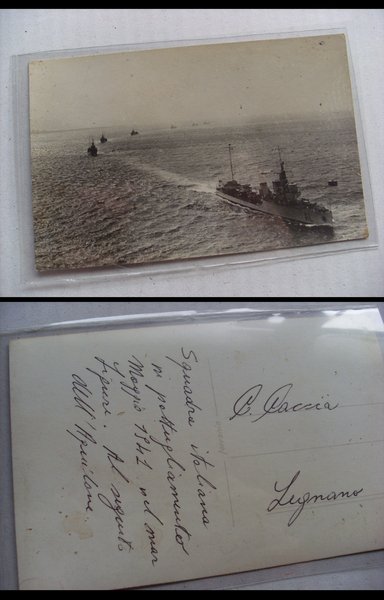 Squadra italiana
in pattugliamento
Maggio 1941 nel mar
Ligure. Al seguito
dell'Aquilone.
C. Caccia
Legnano